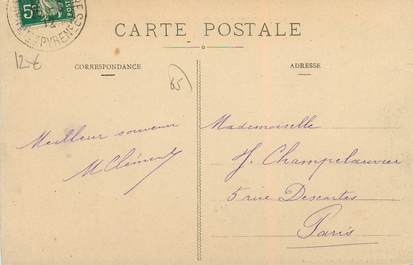 CARTE POSTALE
5c
POST
PYRENEES
12€
CORRESPONDANCE
ADRESSE
85
Meilleur souvenir
M Clément
Mademoiselle
J. Champelauvier
5 rue Descartes
Paris